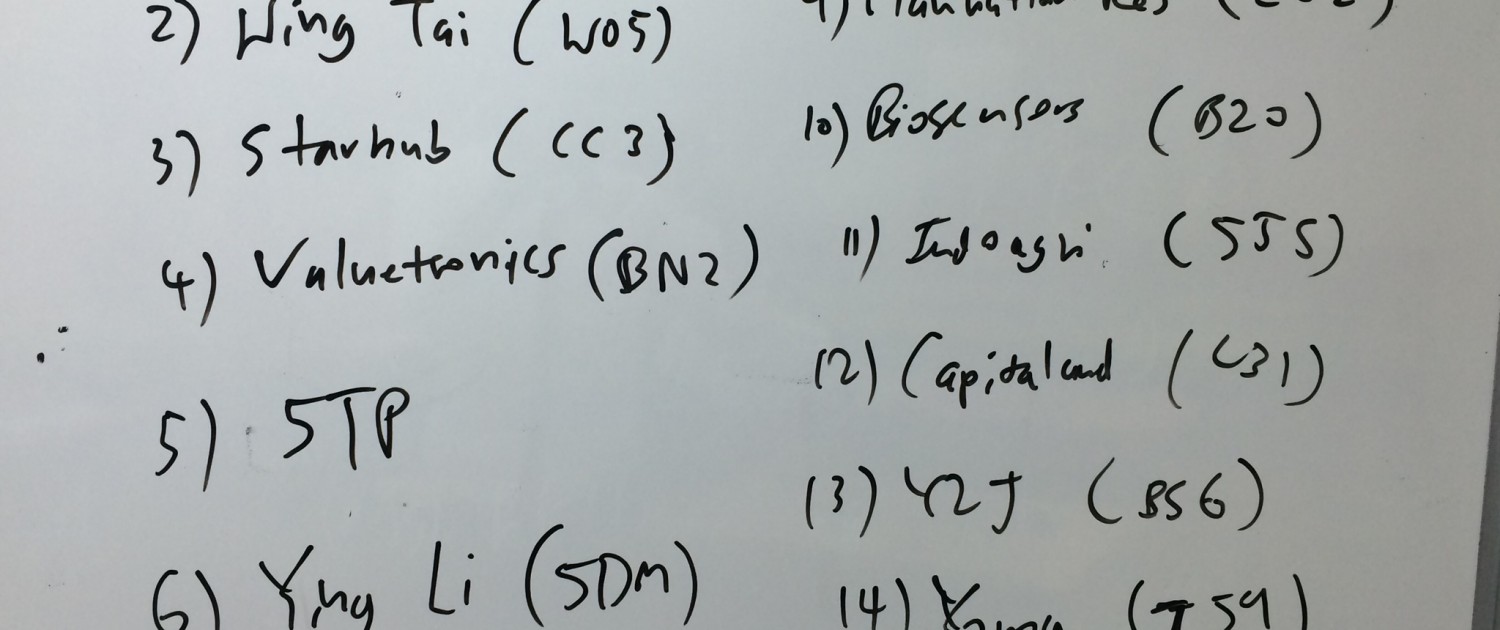 2) Wing Tai (W05)
3) Starhub (CC3)
4) Valuetronics (BN2)
5) 5TP
6) Ying Li (5DM)
9)
10) Biosensors (B20)
11) Indoagri (5JS)
12) Capitaland (C31)
13) YZJ (BS6)
14)